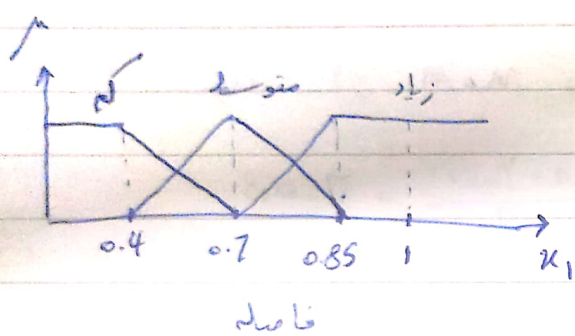 μ
کم متوسط زیاد
0.4 0.7 0.85 1 x₁
فاصله